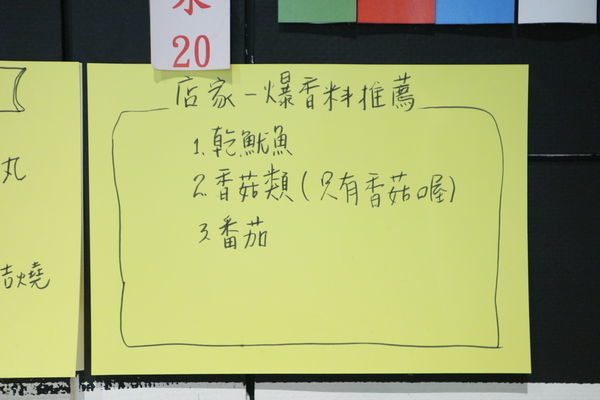 20
店家-爆香料推薦
1.乾魷魚
2.香菇類(只有香菇喔)
3.番茄
丸
燒